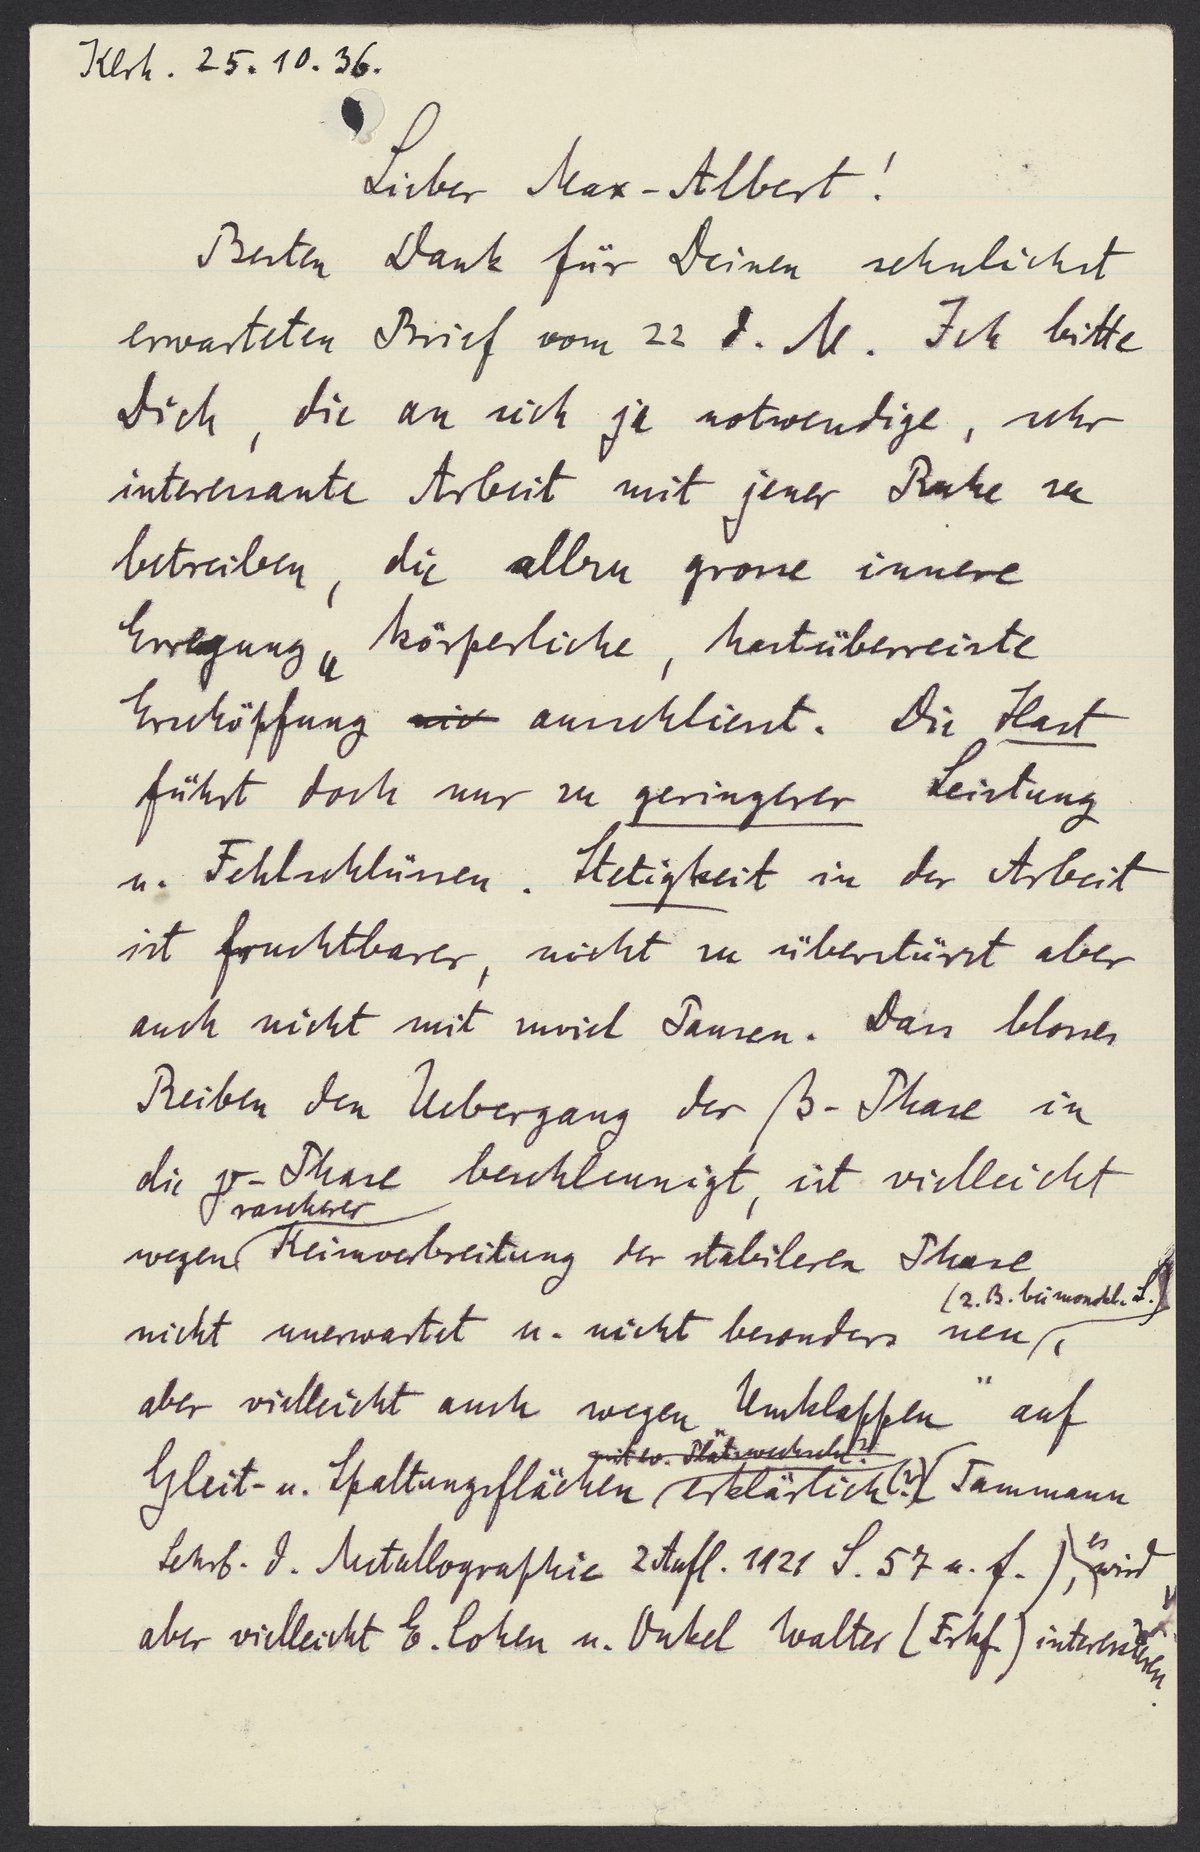 Klrh. 25.10.36.
Lieber Max-Albert!
Besten Dank für Deinen sehnlichst
erwarteten Brief vom 22 d. M. Ich bitte
Dich, die an sich ja notwendige, sehr
interessante Arbeit mit jener Ruhe zu
betreiben, die allzu grosse innere
Erregung u. körperliche, hastüberreizte
Erschöpfung ausschliesst. Die Hast
führt doch nur zu geringerer Leistung
u. Fehlschlüssen. Stetigkeit in der Arbeit
ist fruchtbarer, nicht zu überstürzt aber
auch nicht mit zuviel Pausen. Dass blosses
Reiben den Uebergang der β-Phase in
die γ-Phase beschleunigt, ist vielleicht
rascherer
wegen Keimverbreitung der stabileren Phase
(z. B. bei monokl. S.)
nicht unerwartet u. nicht besonders neu,
aber vielleicht auch wegen „Umklappen" auf
mit ev. Platzwechseln?
Gleit- u. Spaltungsflächen erklärlich (?) (Tammann
Lehrb. d. Metallographie 2 Aufl. 1921 S. 57 u. f.), es wird
aber vielleicht E. Cohen u. Onkel Walter (Frkf.) interessieren.